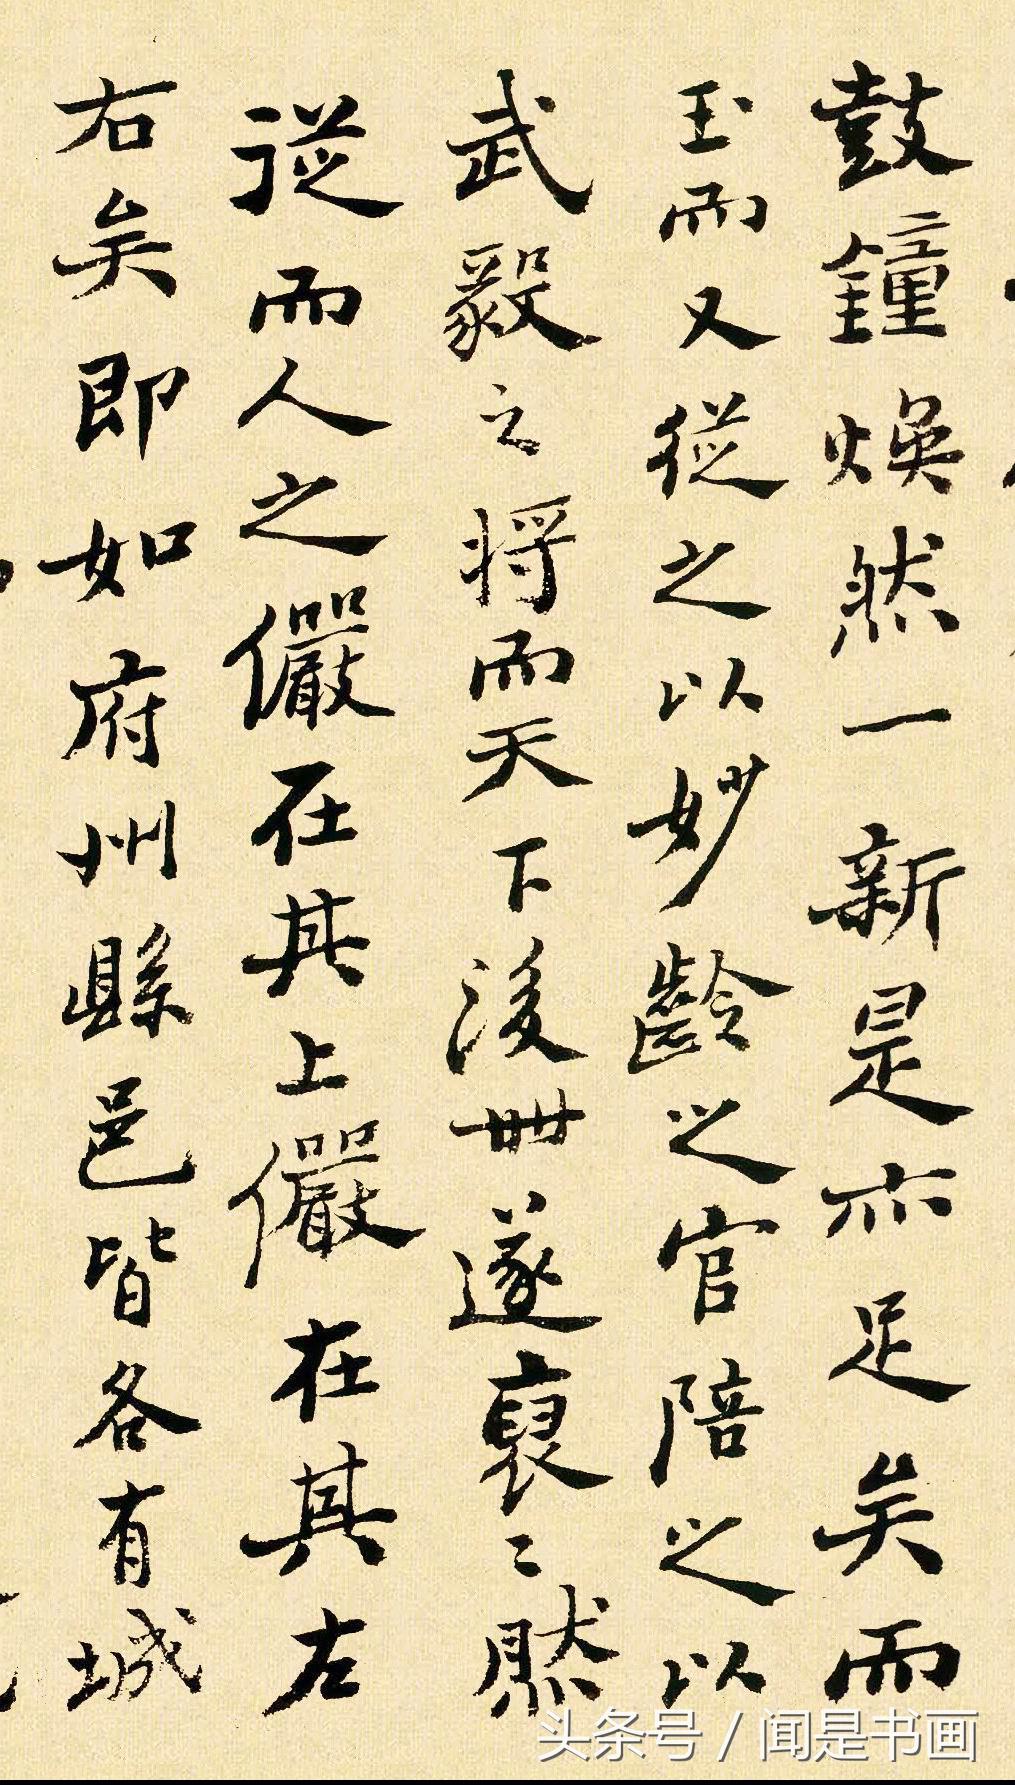 鼓鐘焕然一新是亦足矣而
玉而又從之以妙齡之官陪之以
武毅之將而天下後世遂裒〻然
從而人之儼在其上儼在其左
右矣即如府州縣邑皆各有城
头条号 / 闻是书画